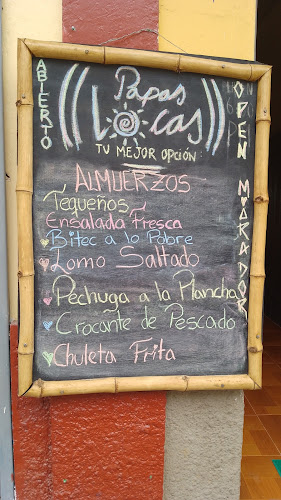 ABIERTO
Papas
Locas
TU MEJOR OPCIÓN
ALMUERZOS
Tequeños
Ensalada Fresca
Bitec a lo Pobre
Lomo Saltado
Pechuga a la Plancha
Crocante de Pescado
Chuleta Frita
OPEN
MIRADOR